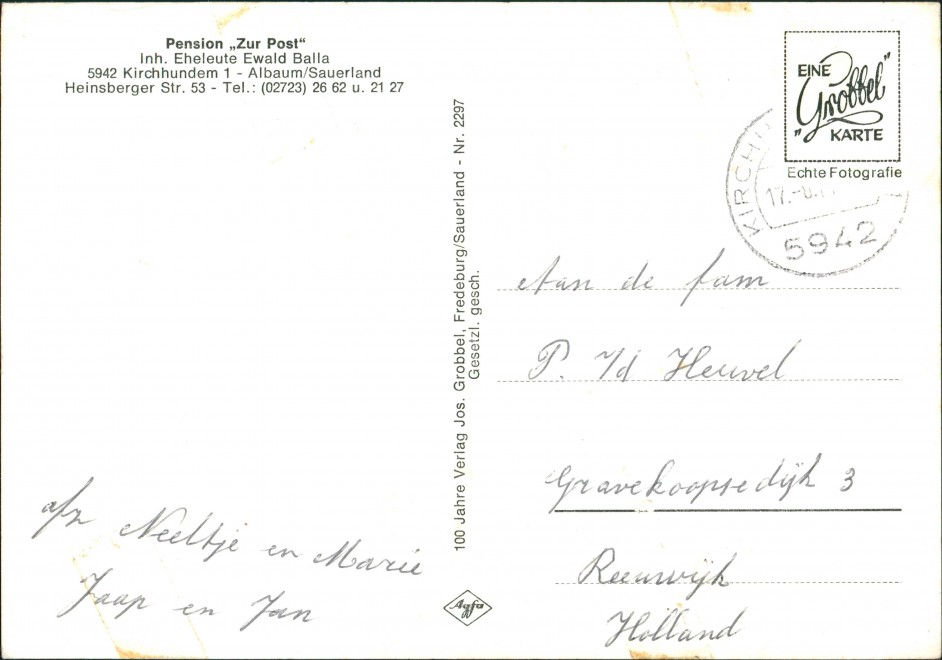 Pension „Zur Post“
Inh. Eheleute Ewald Balla
5942 Kirchhundem 1 - Albaum/Sauerland
Heinsberger Str. 53 - Tel.: (02723) 26 62 u. 21 27
afz Neeltje en Marie
Jaap en Jan
100 Jahre Verlag Jos. Grobbel, Fredeburg/Sauerland - Nr. 2297
Gesetzl. gesch.
Agfa
EINE
„Grobbel“
KARTE
Echte Fotografie
KIRCHH
17.
5942
Aan de fam
P. v/d Heuvel
Gravekoopsedijk 3
Reeuwijk
Holland